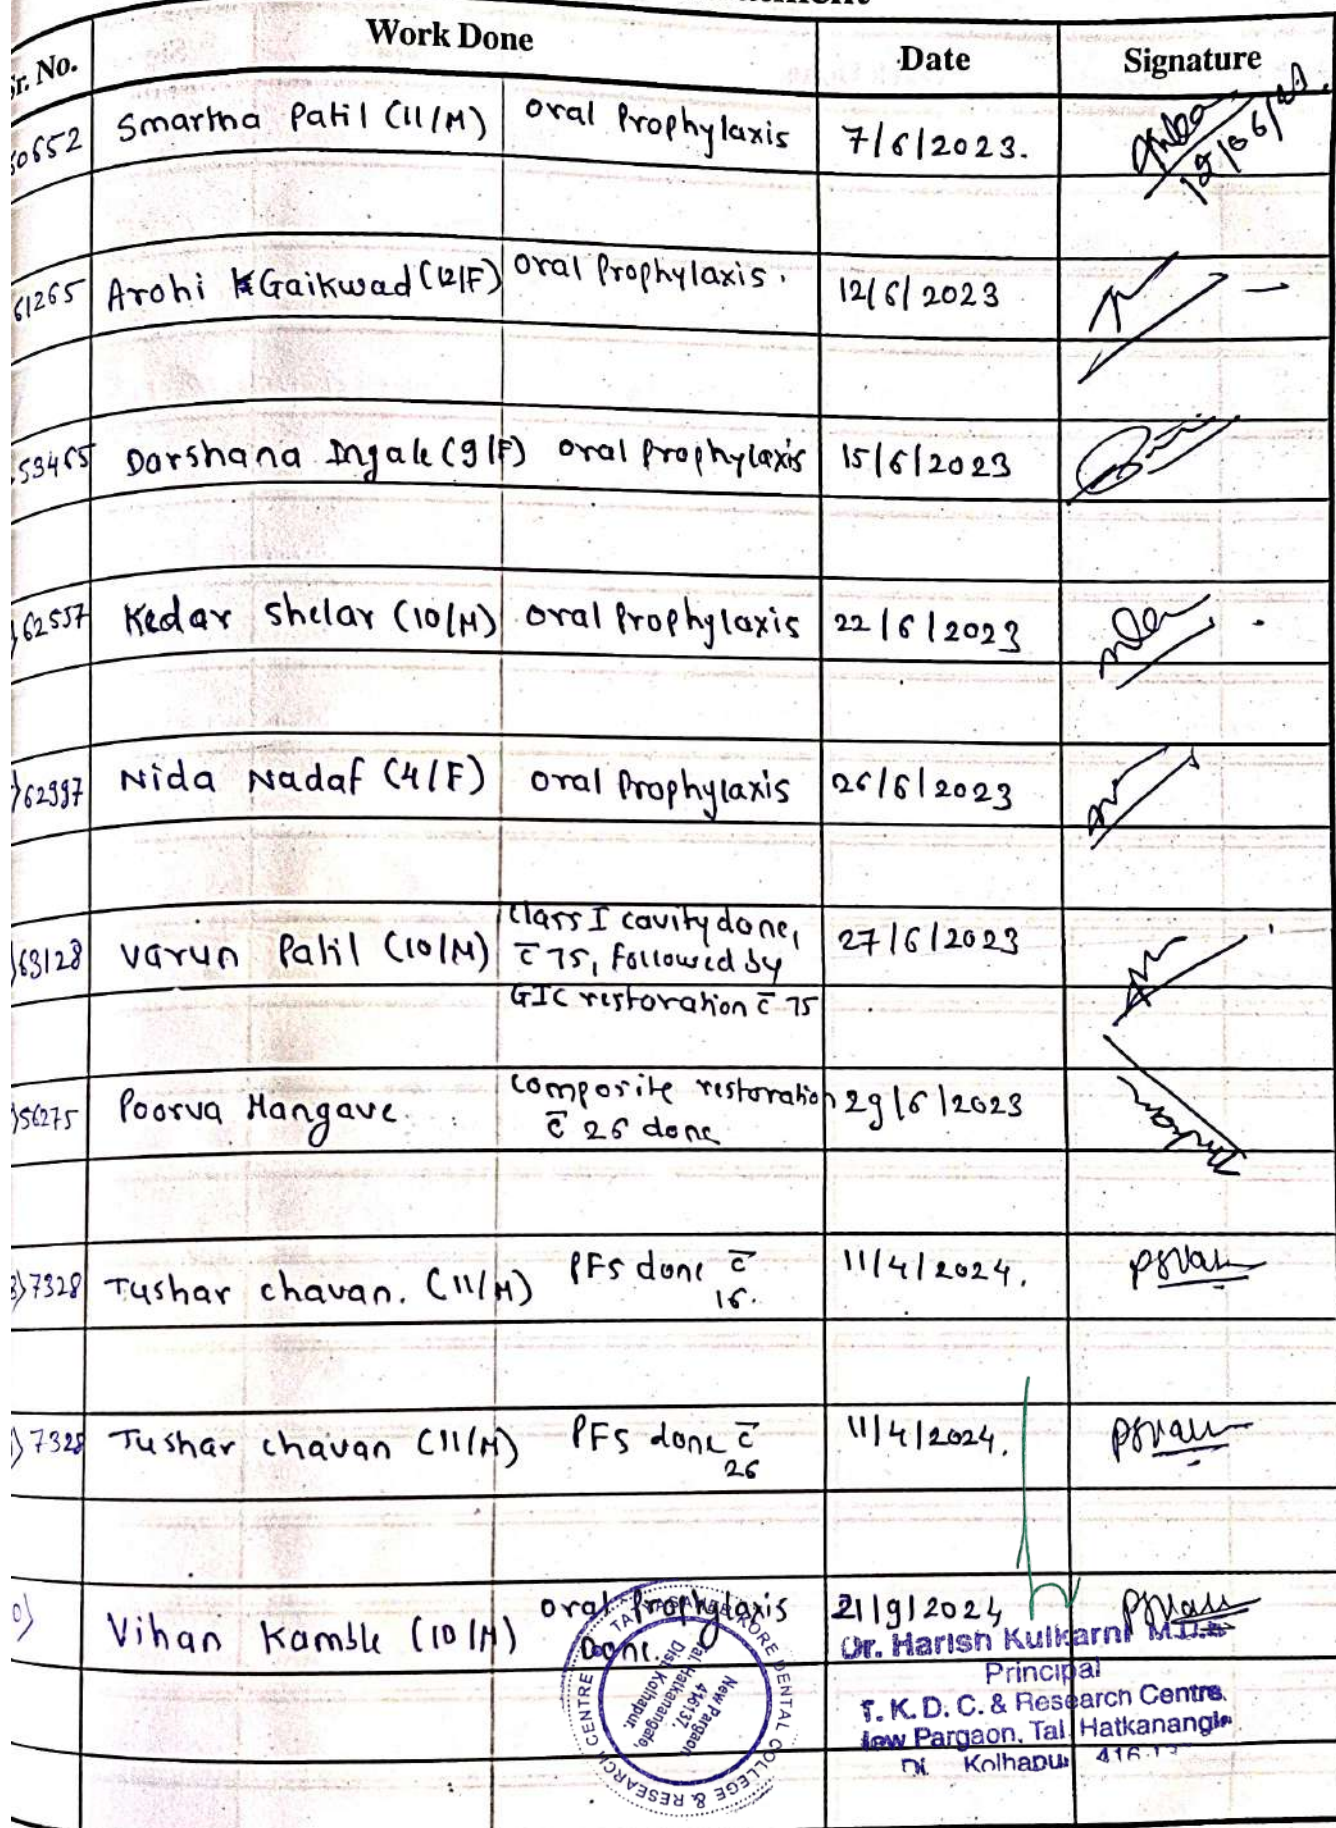 Sr. No. Work Done Date Signature
60652 Smartha Patil (11/M) oral Prophylaxis 7/6/2023.
61265 Arohi Gaikwad (12/F) oral Prophylaxis. 12/6/2023
53465 Darshana Ingale (9/F) oral Prophylaxis 15/6/2023
62557 Kedar Shelar (10/M) oral Prophylaxis 22/6/2023
62997 Nida Nadaf (4/F) oral Prophylaxis 26/6/2023
63128 Varun Patil (10/M) class I cavity done, 27/6/2023
c̄ 75, followed by
GIC restoration c̄ 75
56275 Poorva Hangave. composite restoration 29/6/2023
c̄ 26 done
7328 Tushar chavan. (11/M) PFS done c̄ 11/4/2024.
16.
7328 Tushar chavan (11/M) PFS done c̄ 11/4/2024.
26
0) Vihan Kamble (10/M) oral Prophylaxis 21/9/2024
Done.
TATYASAHEB KORE DENTAL COLLEGE & RESEARCH CENTRE
New Pargaon
416137,
Tal. Hatkanangale,
Dist. Kolhapur.
Dr. Harish Kulkarni M.D.S
Principal
T. K. D. C. & Research Centre.
New Pargaon. Tal. Hatkanangle
Di Kolhapur 416